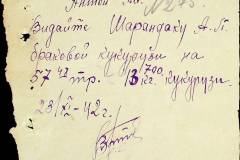 Видайте Шарандаку А.П.
бракової кукурузи на
57 тр. 13 700 кг. кукурузи.
23/XI-42 г.